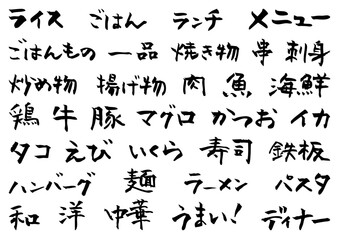 ライス ごはん ランチ メニュー
ごはんもの 一品 焼き物 串 刺身
炒め物 揚げ物 肉 魚 海鮮
鶏 牛 豚 マグロ かつお イカ
タコ えび いくら 寿司 鉄板
ハンバーグ 麺 ラーメン パスタ
和 洋 中華 うまい! ディナー